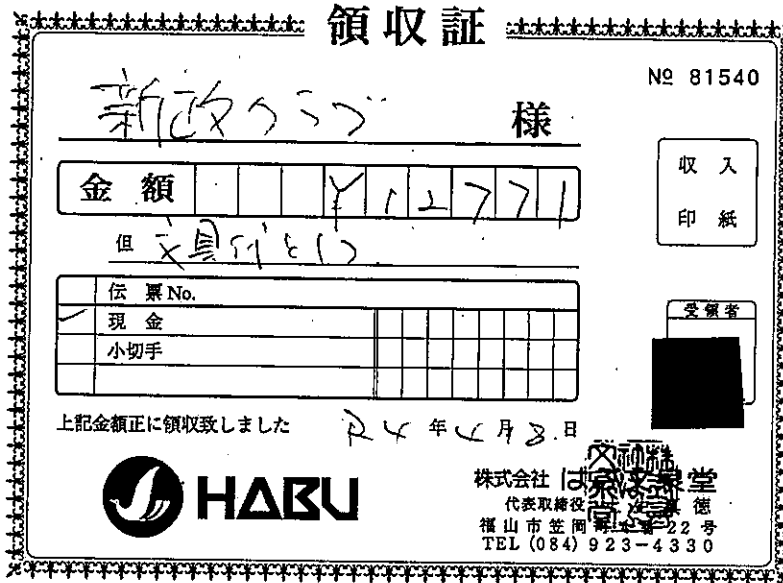 領収証
№ 81540
新政クラブ 様
収入
印紙
金額 ¥12771
但 文具代として
伝票No.
現金
小切手
受領者
上記金額正に領収致しました R4年4月8日
HABU
株式会社
代表取締役
福山市笠岡町 22号
TEL (084) 923-4330